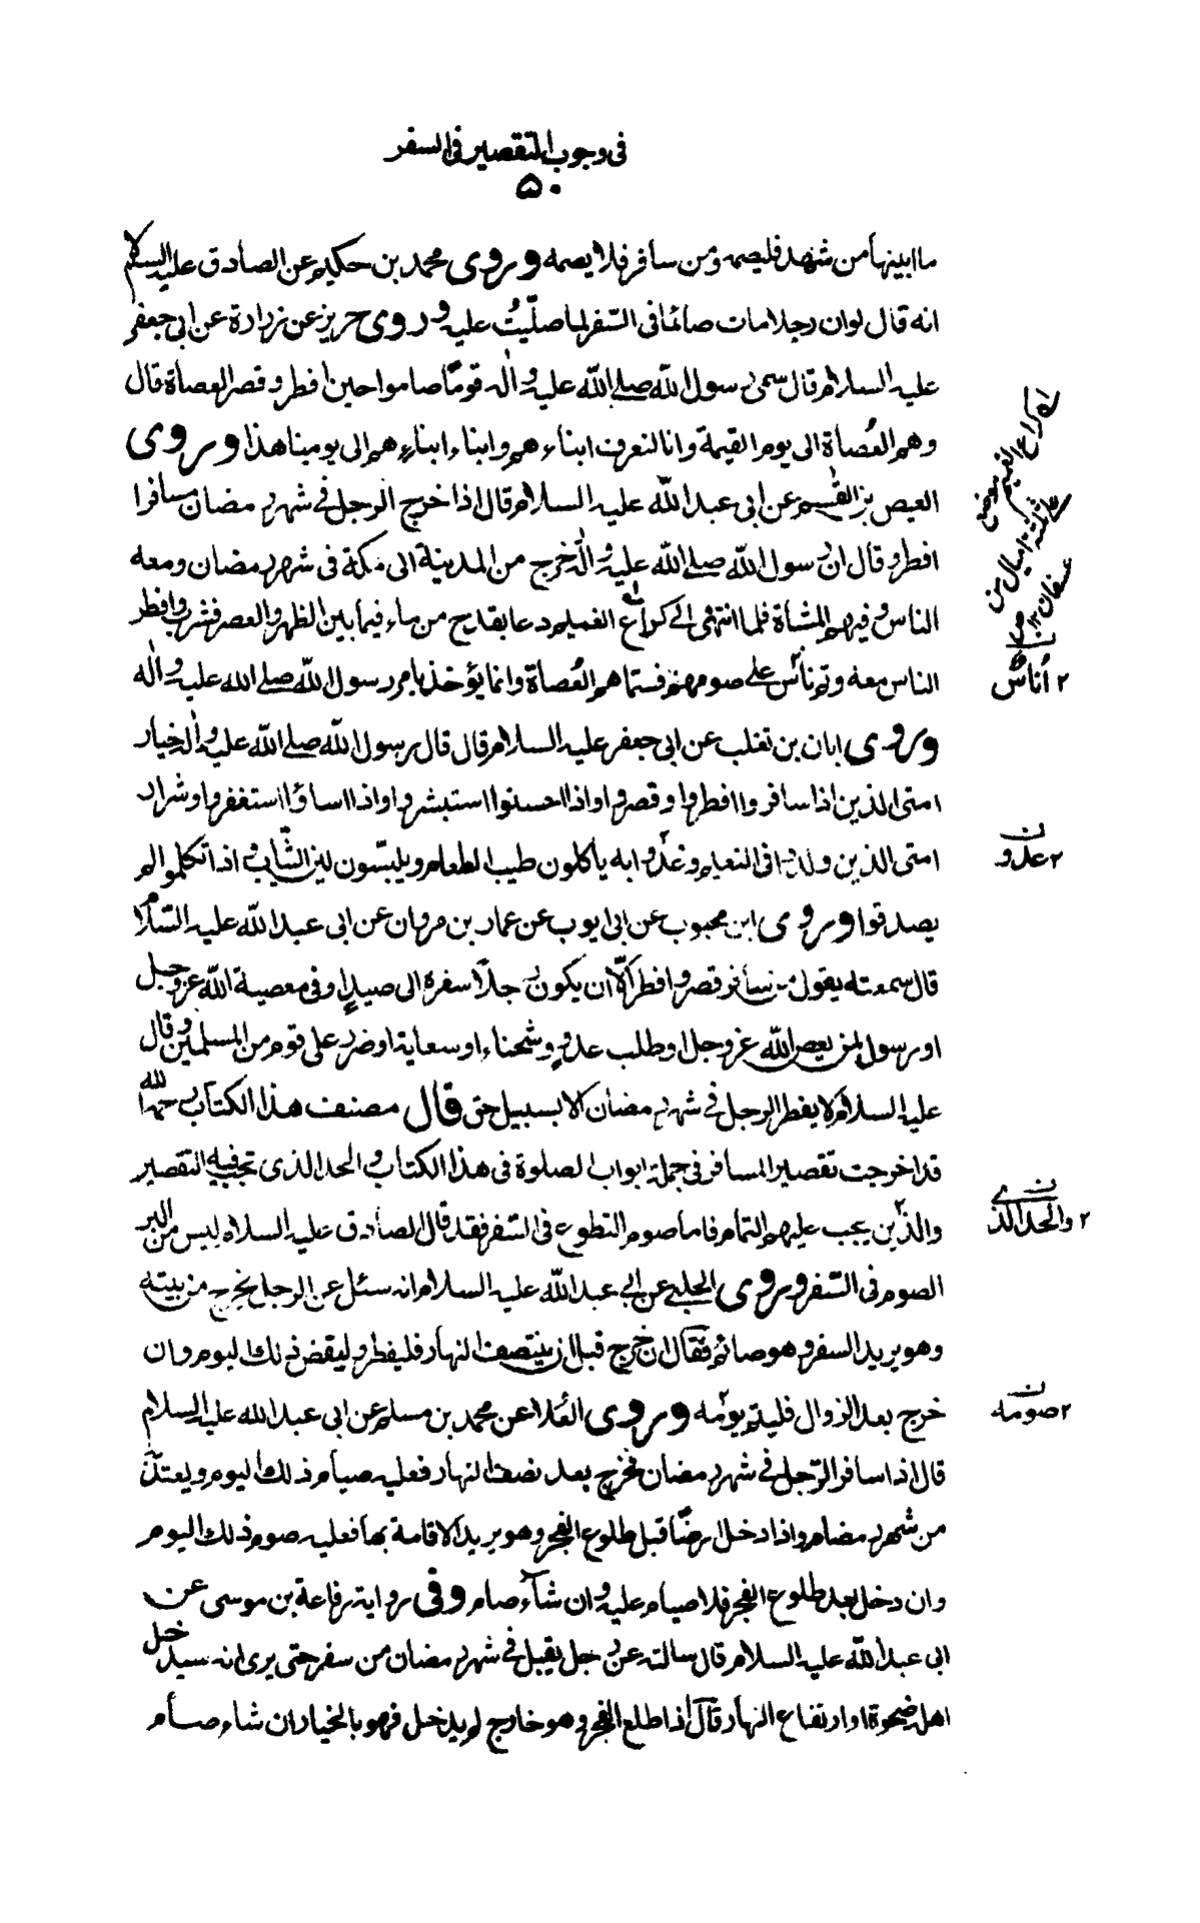 فى وجوب التقصير فى السفر
۵۰
ما ابينها من شهد فليصمه ومن سافر فلا يصمه وروى محمد بن حكيم عن الصادق عليه السلام
انه قال لو ان رجلا مات صائما فى السّفر لما صلّيتُ عليه وروى حريز عن زرارة عن ابى جعفر
عليه السلام قال سمى رسول الله صلى الله عليه واله قومًا صاموا حين افطر وقصر العصاة قال
وهم العُصاة الى يوم القيمة وانا لنعرف ابناءهم وابناء ابناءهم الى يومنا هذا وروى
العيص بن القسم عن ابى عبد الله عليه السلام قال اذا خرج الرجل فى شهر رمضان مسافرا
افطر وقال ان رسول الله صلى الله عليه واله خرج من المدينة الى مكة فى شهر رمضان ومعه
الناس وفيهم المشاة فلما انتهى الى كراع الغميم دعا بقدح من ماء فيما بين الظهر والعصر فشرب وافطر
الناس معه وتم ناس على صومهم فسماهم العُصاة وانما يؤخذ بامر رسول الله صلى الله عليه واله
وروى ابان بن تغلب عن ابى جعفر عليه السلام قال قال رسول الله صلى الله عليه واله خيار
امتى الذين اذا سافروا افطروا وقصروا واذا احسنوا استبشروا واذا اساؤا استغفروا وشرار
امتى الذين ولدوا فى النعيم وغذوا به ياكلون طيب الطعام ويلبسون لين الثياب واذا تكلموا لم
يصدقوا وروى ابن محبوب عن ابى ايوب عن عمار بن مروان عن ابى عبد الله عليه السّلام
قال سمعته يقول من سافر قصر وافطر الّا ان يكون رجلًا سفره الى صيدٍ او فى معصية الله عز وجل
او رسول لمن يعصى الله عز وجل او طلب عدوٍ وشحناء او سعاية او ضرر على قوم من المسلمين وقال
عليه السلام لا يفطر الرجل فى شهر رمضان الا بسبيل حق قال مصنف هذا الكتاب رحمه الله
قد اخرجت تقصير المسافر فى جملة ابواب الصلوة فى هذا الكتاب والحد الذى تجب فيه التقصير
والذين يجب عليهم التمام فاما صوم التطوع فى السّفر فقد قال الصادق عليه السلام ليس من البر
الصوم فى السّفر وروى الحلبى عن ابى عبد الله عليه السلام انه سئل عن الرجل يخرج من بيته
وهو يريد السفر وهو صائم فقال ان خرج قبل ان ينتصف النهار فليفطر وليقض ذلك اليوم وان
خرج بعد الزوال فليتم يومه وروى العُلا عن محمد بن مسلم عن ابى عبد الله عليه السلام
قال اذا سافر الرّجل فى شهر رمضان فخرج بعد نصف النهار فعليه صيام ذلك اليوم ويعتد به
من شهر رمضان واذا دخل ارضًا قبل طلوع الفجر وهو يريد الاقامة بها فعليه صوم ذلك اليوم
وان دخل بعد طلوع الفجر فلا صيام عليه وان شآء صام وفى رواية رفاعة بن موسى عن
ابى عبد الله عليه السلام قال سالته عن رجل يقبل فى شهر رمضان من سفر حتى يرى انه سيدخل
اهله ضحوة او ارتفاع النهار قال اذا طلع الفجر وهو خارج لم يدخل فهو بالخيار ان شاء صام
كراع الغميم موضع
على ثلثة اميال من
عسفان
۲ اُناسٌ
۲ غدو ن
۲ والحد الذى ن
۲ صومه ن